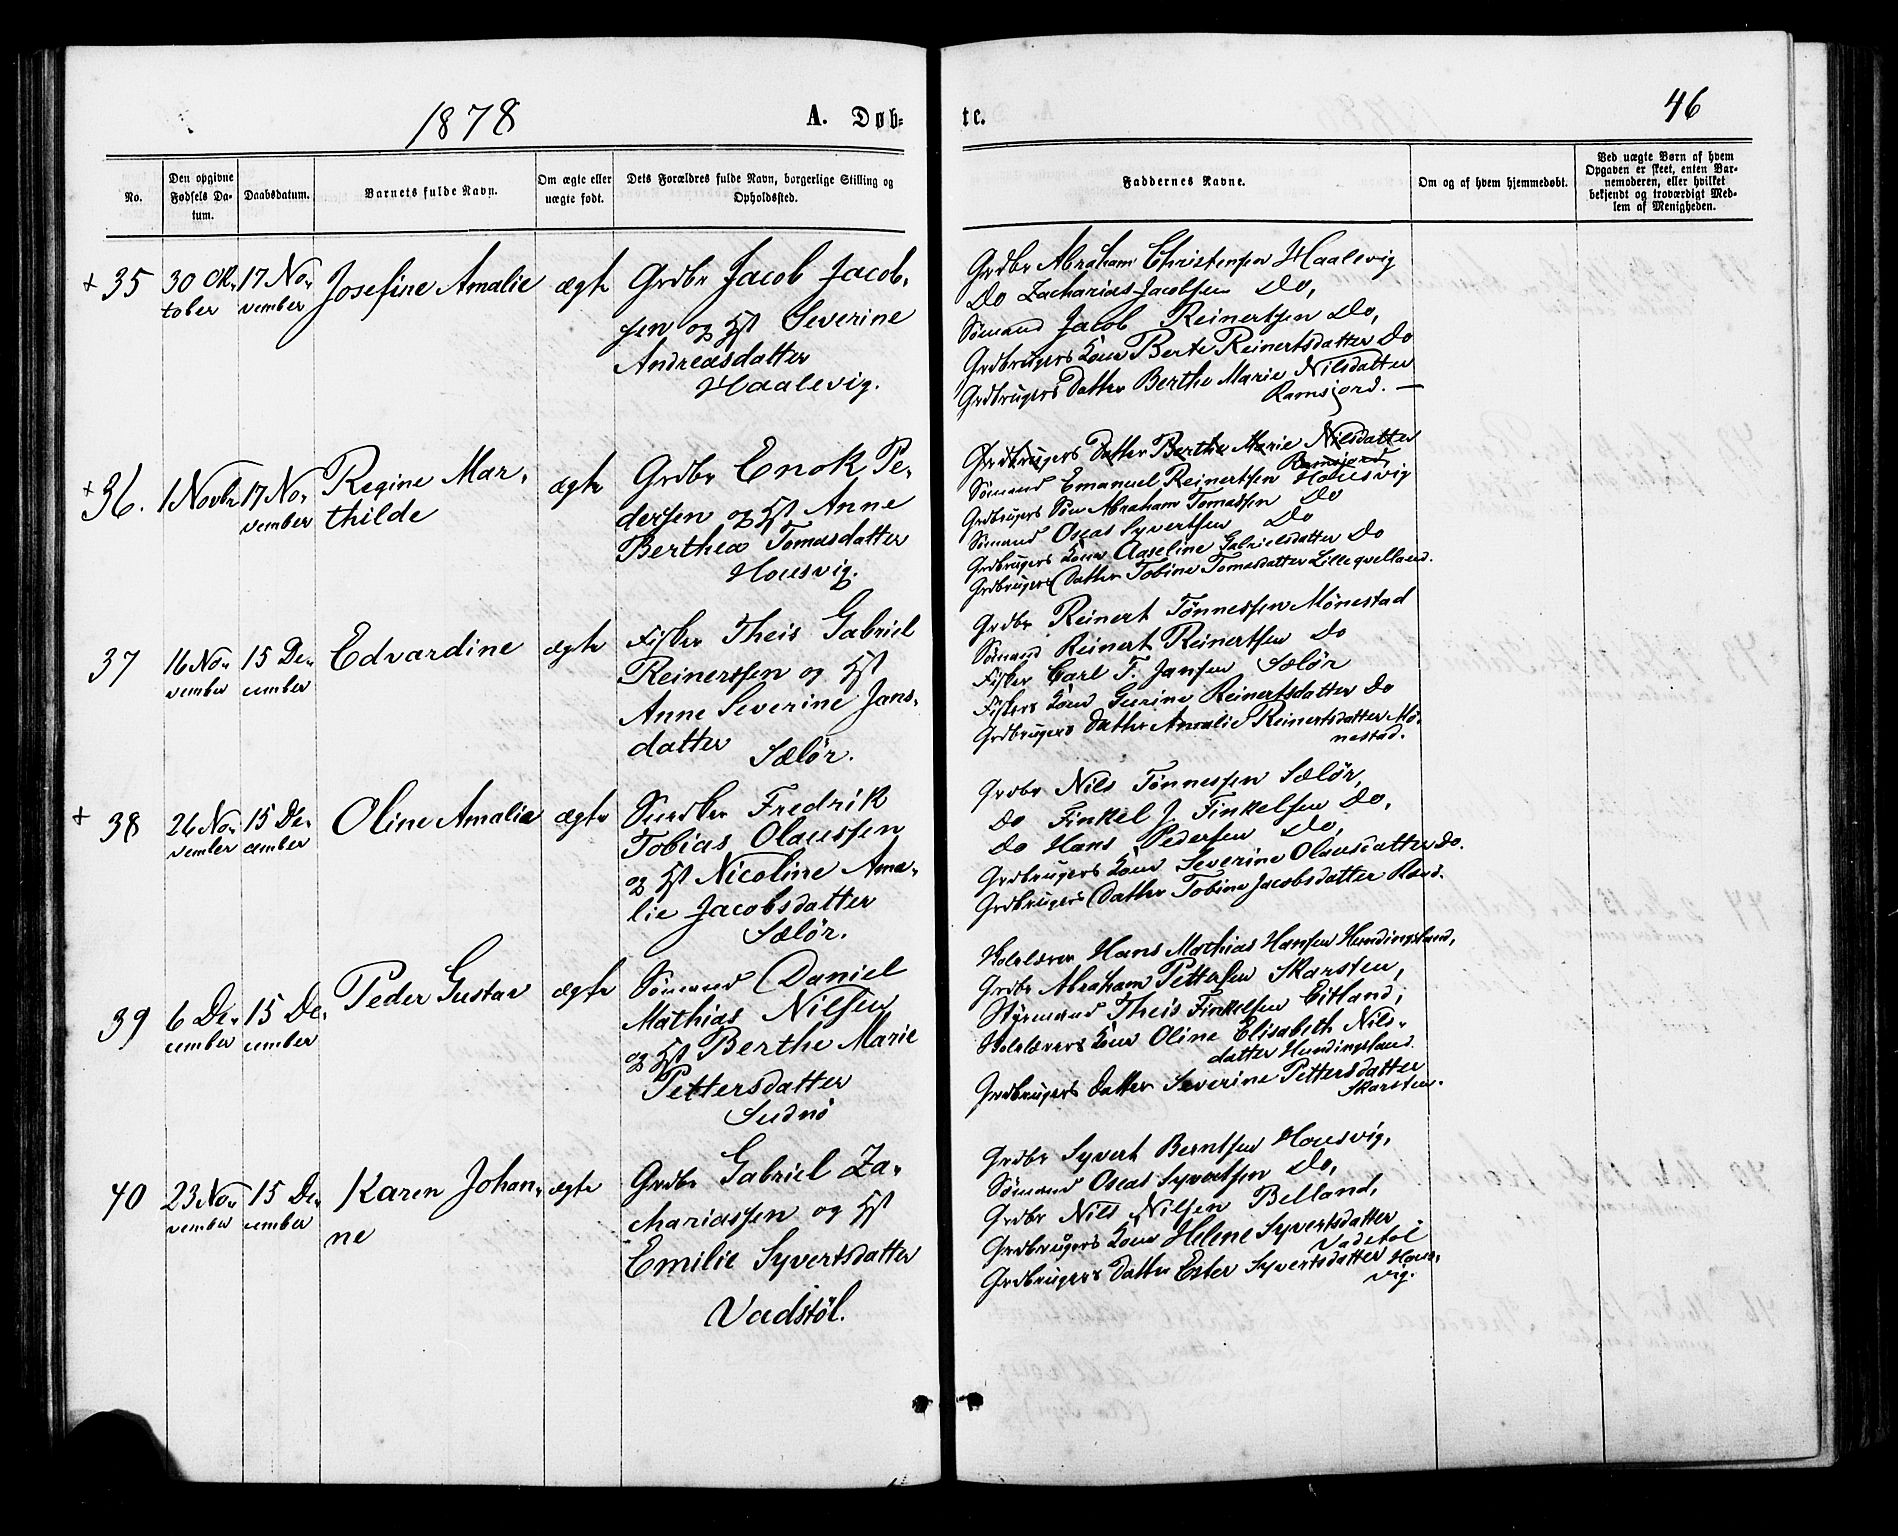 1878 A. Døb-
te. 46
No.
Den opgivne
Fødsels Da-
tum.
Daabsdatum.
Barnets fulde Navn.
Om ægte eller
uægte født.
Dets Forældres fulde Navn, borgerlige Stilling og
Opholdssted.
Faddernes Navne.
Om og af hvem hjemmedøbt.
Ved uægte Børn af hvem
Opgaven er skeet, enten Bar-
nemoderen, eller hvilket
bekjendt og troværdigt Med-
lem af Menigheden.
+ 35
30 Ok-
tober
17 No-
vember
Josefine Amalie
ægte
Grdbr Jacob Jacob-
sen og Hst Severine
Andreasdatter
Haalevig.
Grdbr Abraham Christensen Haalevig
Do Zacharias Jacobsen Do,
Sømand Jacob Reinertsen Do,
Grdbrugers Kone Berte Reinertsdatter Do
Grdbrugers Datter Berthe Marie Nilsdatter
Ramsjord. —
+ 36.
1 Novbr
17 No-
vember
Regine Mar-
thilde
ægte
Grdbr Enok Pe-
dersen og Hst Anne
Berthea Tomasdatter
Housvig.
Grdbrugers Datter Berthe Marie Nilsdatter
Ramsjord,
Sømand Emanuel Reinertsen Housvig
Grdbrugers Søn Abraham Tomassen Do
Sømand Oseas Syvertsen Do
Grdbrugers Kone Aaseline Gabrielsdatter Do
Grdbrugers Datter Tobine Tomasdatter Lilleqvelland.
37
16 No-
vember
15 De-
cember
Edvardine
ægte
Fisker Theis Gabriel
Reinertsen og Hst
Anne Severine Jans-
datter
Sælør.
Grdbr Reinert Tønnessen Mønestad
Sømand Reinert Reinertsen Do
Fisker Carl T. Jansen Sælør
Fiskers Kone Gurine Reinertsdatter Do
Grdbrugers Datter Amalie Reinertsdatter Mø-
nestad.
+ 38
26 No-
vember
15 De-
cember
Oline Amalie
ægte
Fredrik
Tobias Olaussen
og Hst Nicoline Ama-
lie Jacobsdatter
Sælør.
Grdbr Nils Tønnessen Sælør,
Do Finkel J. Finkelsen Do,
Do Hans Pedersen Do,
Grdbrugers Kone Severine Olausdatter Do.
Grdbrugers Datter Tobine Jacobsdatter
39
6 De-
cember
15 De-
cember
Peder Gustav
ægte
Sømand Daniel
Mathias Nilsen
og Hst Berthe Marie
Pettersdatter
Sudnø
Skolelærer Hans Mathias Hansen Hundingsland,
Grdbr Abraham Pettersen Skarsten,
Styrmand Theis Finkelsen Eitland,
Skolelærers Kone Oline Elisabeth Nils-
datter Hundingsland.
Grdbrugers Datter Severine Pettersdatter
Skarsten.
40
23 No-
vember
15 De-
cember
Karen Johan-
ne
ægte
Grdbr Gabriel Za-
chariassen og Hst
Emilie Syvertsdatter
Vadstøl.
Grdbr Syvert Berntsen Housvig,
Sømand Oseas Syvertsen Do,
Grdbr Nils Nilsen Belland,
Grdbrugers Kone Helene Syvertsdatter
Vadstøl
Grdbrugers Datter Ester Syvertsdatter Hous-
vig.